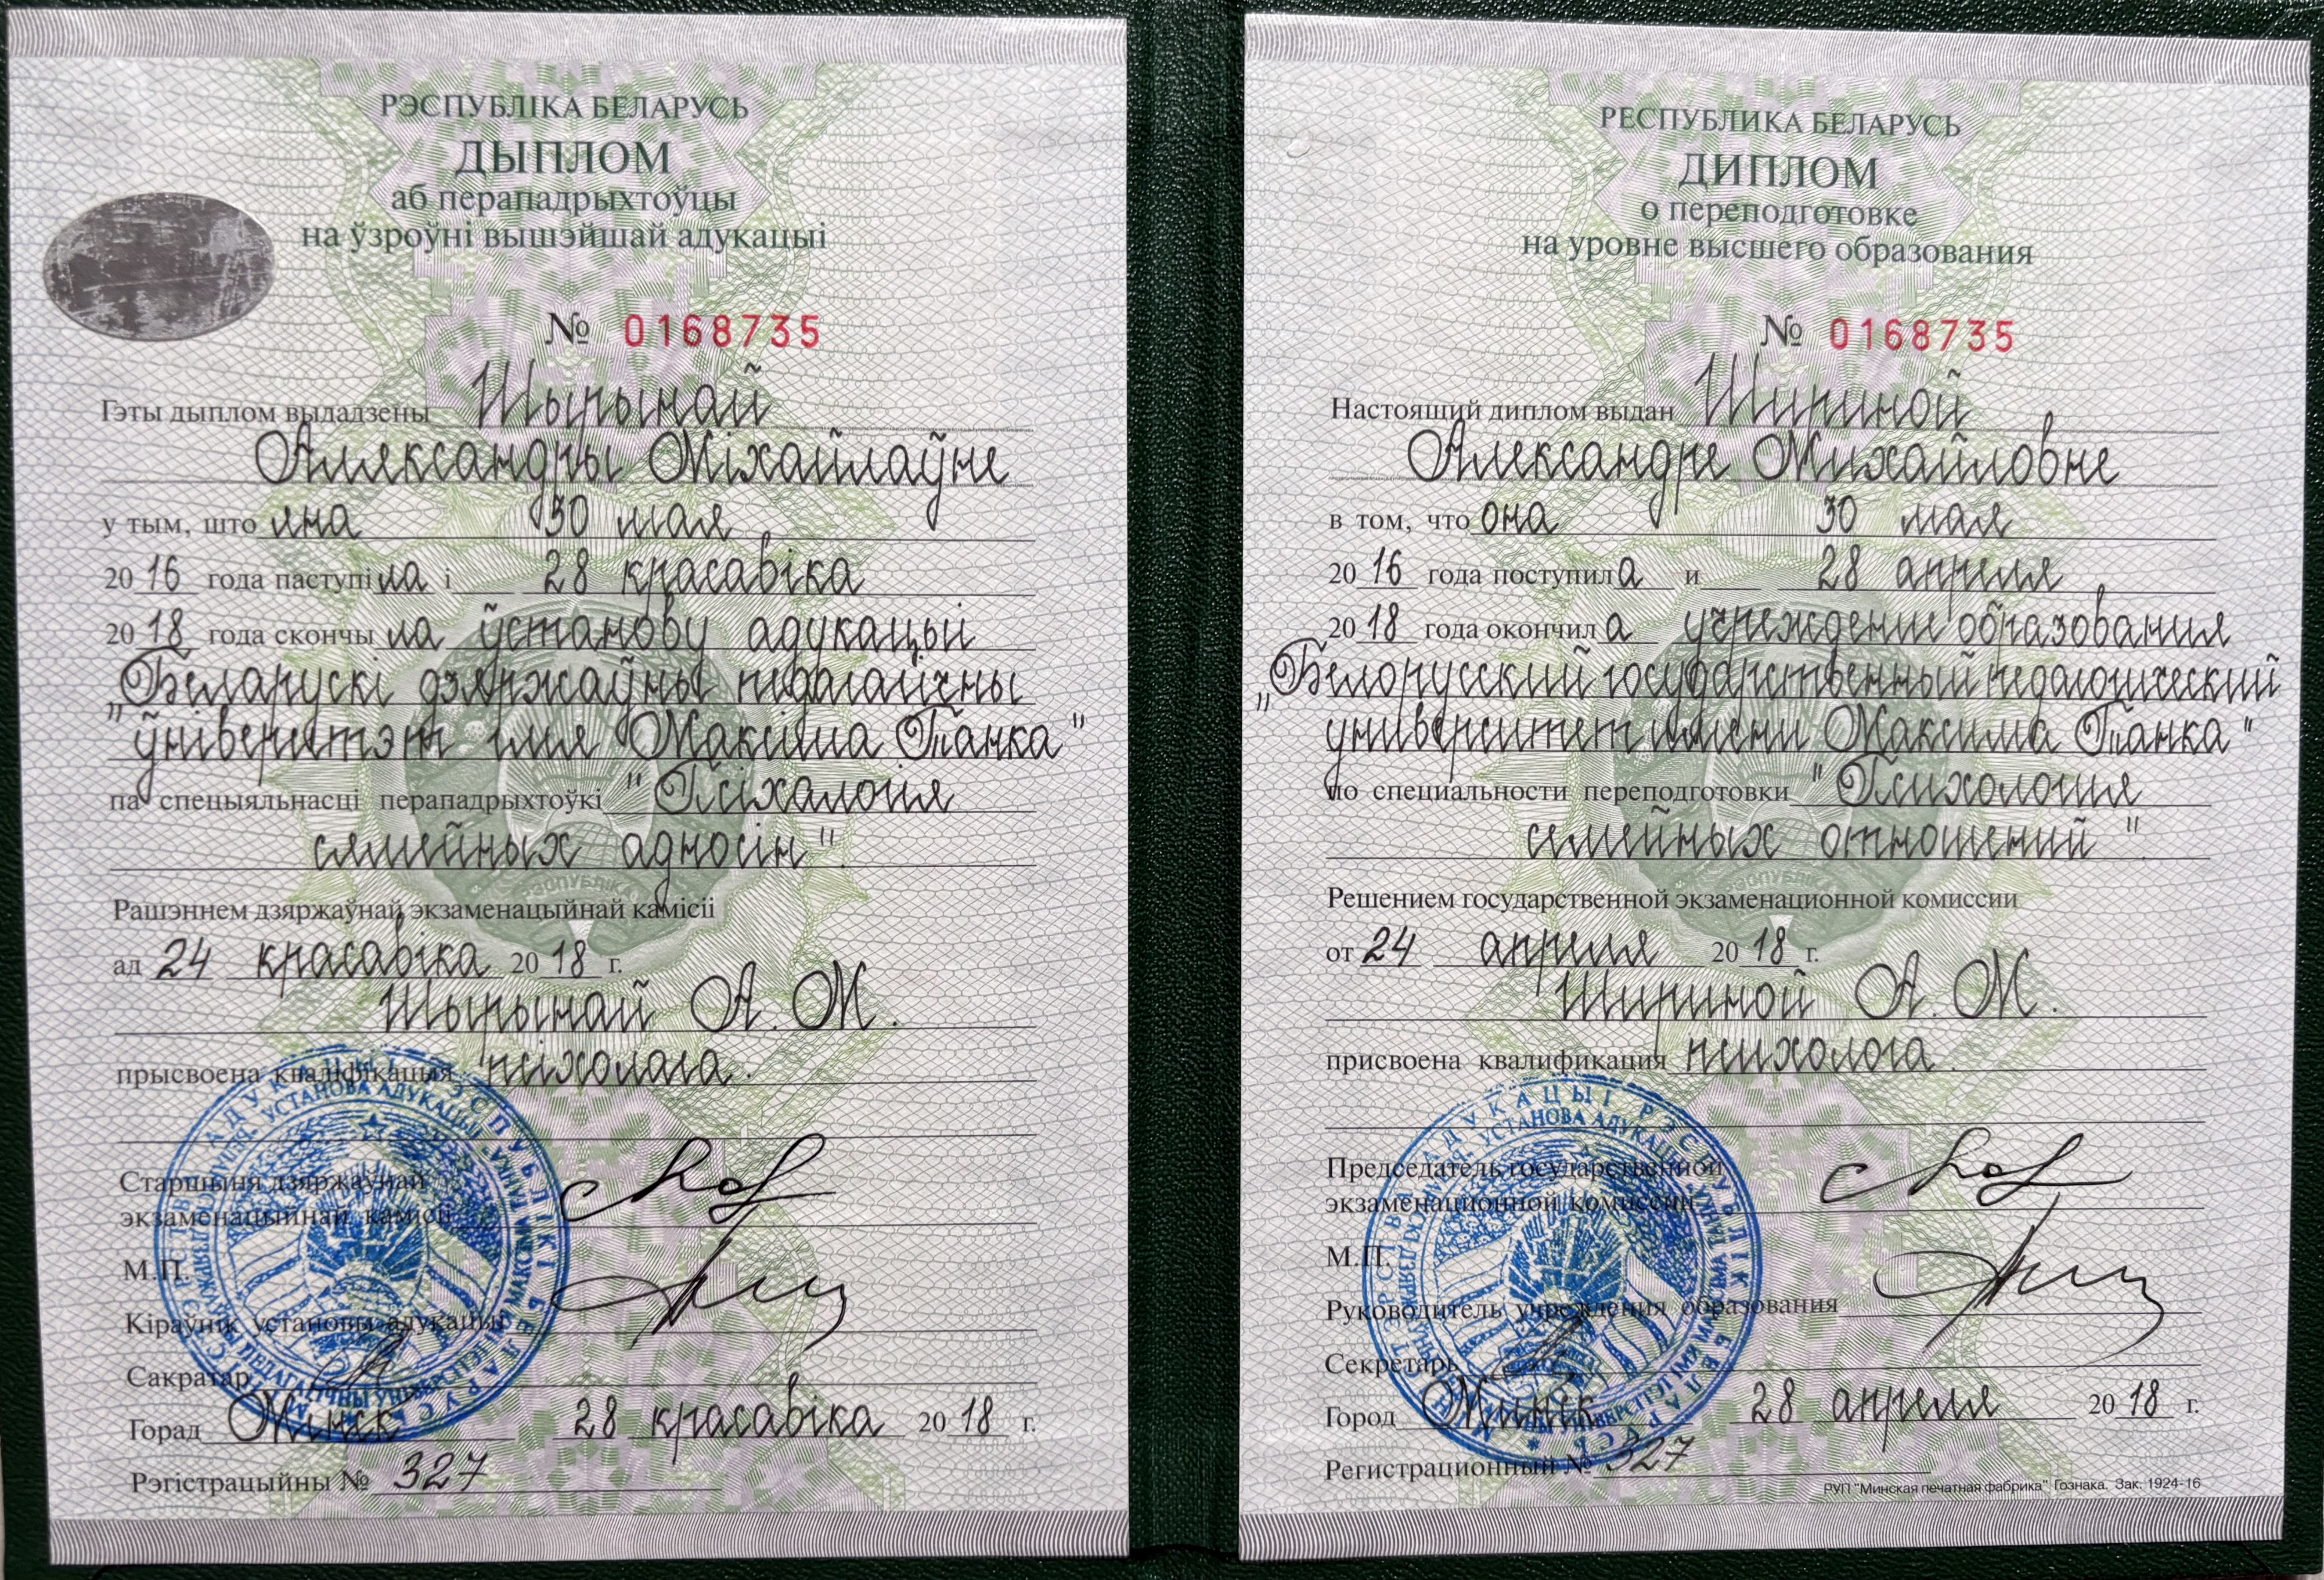 РЭСПУБЛІКА БЕЛАРУСЬ
ДЫПЛОМ
аб перападрыхтоўцы
на ўзроўні вышэйшай адукацыі
№ 0168735
Гэты дыплом выдадзены Шырынай
Аляксандры Міхайлаўне
у тым, што яна 30 мая
20 16 года паступіла і 28 красавіка
20 18 года скончыла ўстанову адукацыі
"Беларускі дзяржаўны педагагічны
ўніверсітэт імя Максіма Танка"
па спецыяльнасці перападрыхтоўкі "Псіхалогія
сямейных адносін".
Рашэннем дзяржаўнай экзаменацыйнай камісіі
ад 24 красавіка 20 18 г.
Шырынай А. М.
прысвоена кваліфікацыя псіхолага.
Старшыня дзяржаўнай
экзаменацыйнай камісіі
М.П.
Кіраўнік установы адукацыі
Сакратар
Горад Мінск 28 красавіка 20 18 г.
Рэгістрацыйны № 327
РЕСПУБЛИКА БЕЛАРУСЬ
ДИПЛОМ
о переподготовке
на уровне высшего образования
№ 0168735
Настоящий диплом выдан Шириной
Александре Михайловне
в том, что она 30 мая
20 16 года поступила и 28 апреля
20 18 года окончила учреждение образования
"Белорусский государственный педагогический
университет имени Максима Танка"
по специальности переподготовки "Психология
семейных отношений".
Решением государственной экзаменационной комиссии
от 24 апреля 20 18 г.
Шириной А. М.
присвоена квалификация психолога.
Председатель государственной
экзаменационной комиссии
М.П.
Руководитель учреждения образования
Секретарь
Город Минск 28 апреля 20 18 г.
Регистрационный № 327
РУП "Минская печатная фабрика" Гознака. Зак. 1924-16